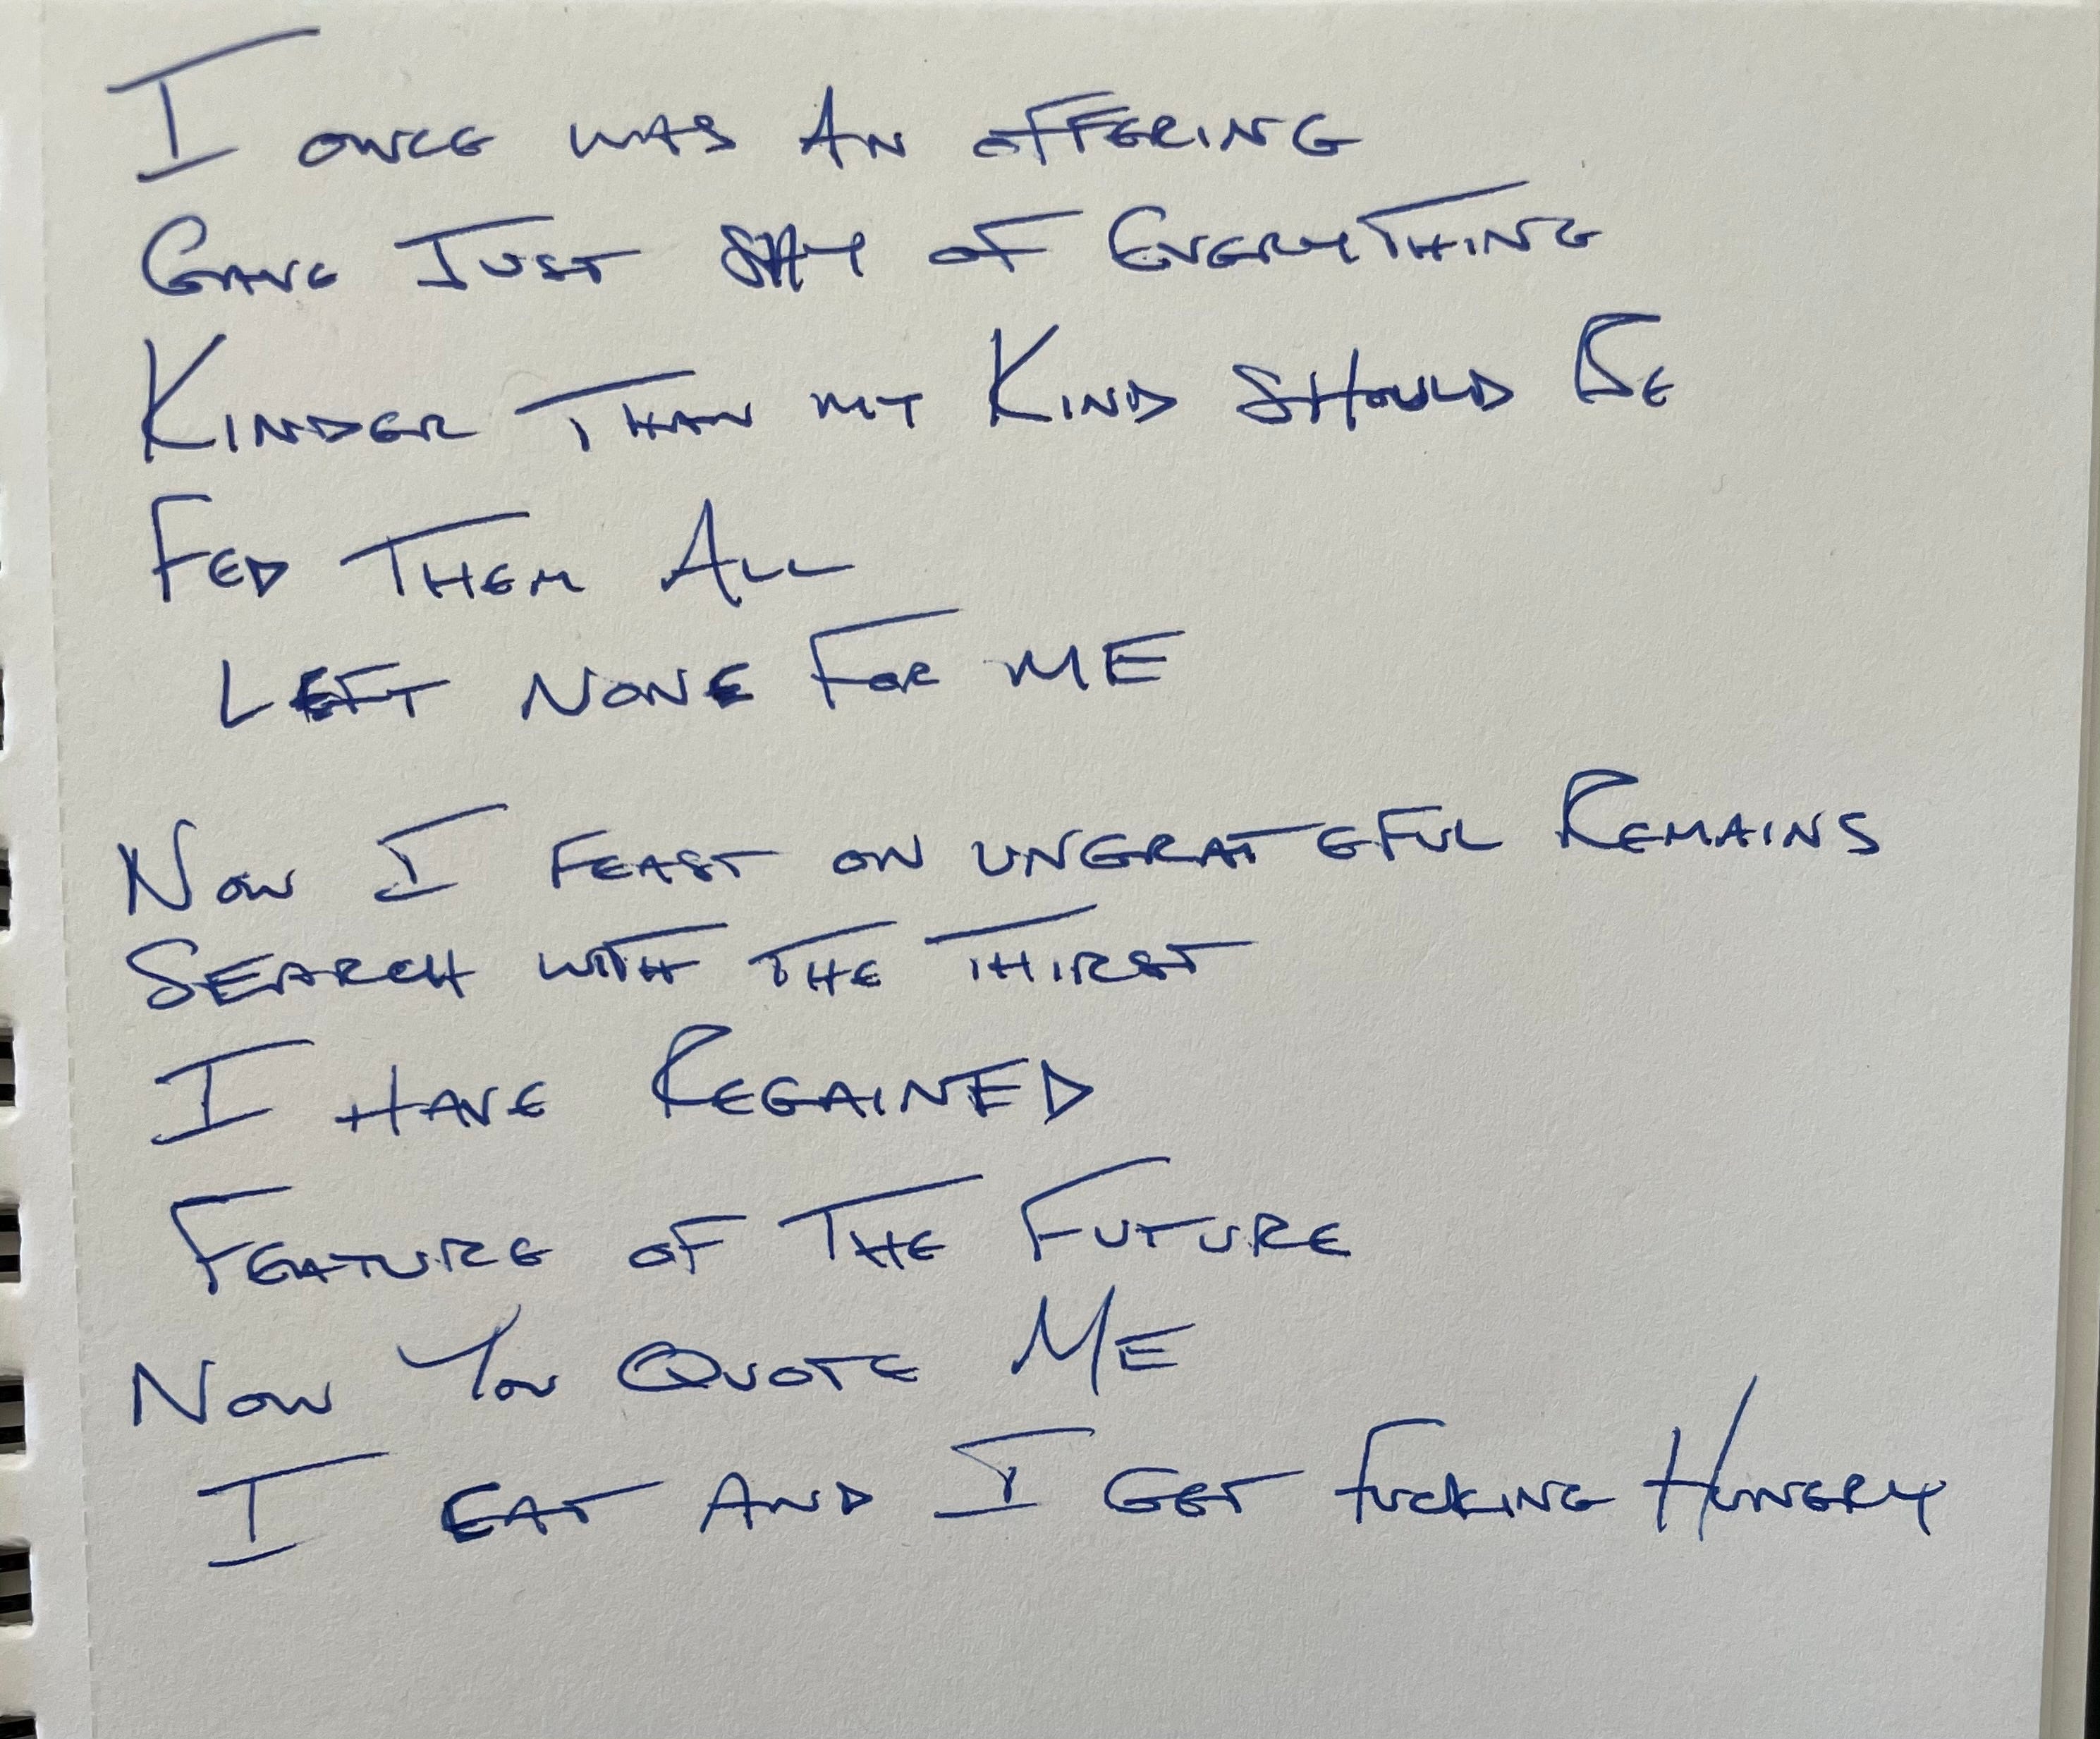 I once was An offering
Gave Just SHY of Everything
Kinder Than my Kind Should Be
Fed Them All
Left None For ME
Now I feast on ungrateful Remains
Search with The Thirst
I have Regained
Feature of The Future
Now You Quote Me
I eat And I Get Fucking Hungry